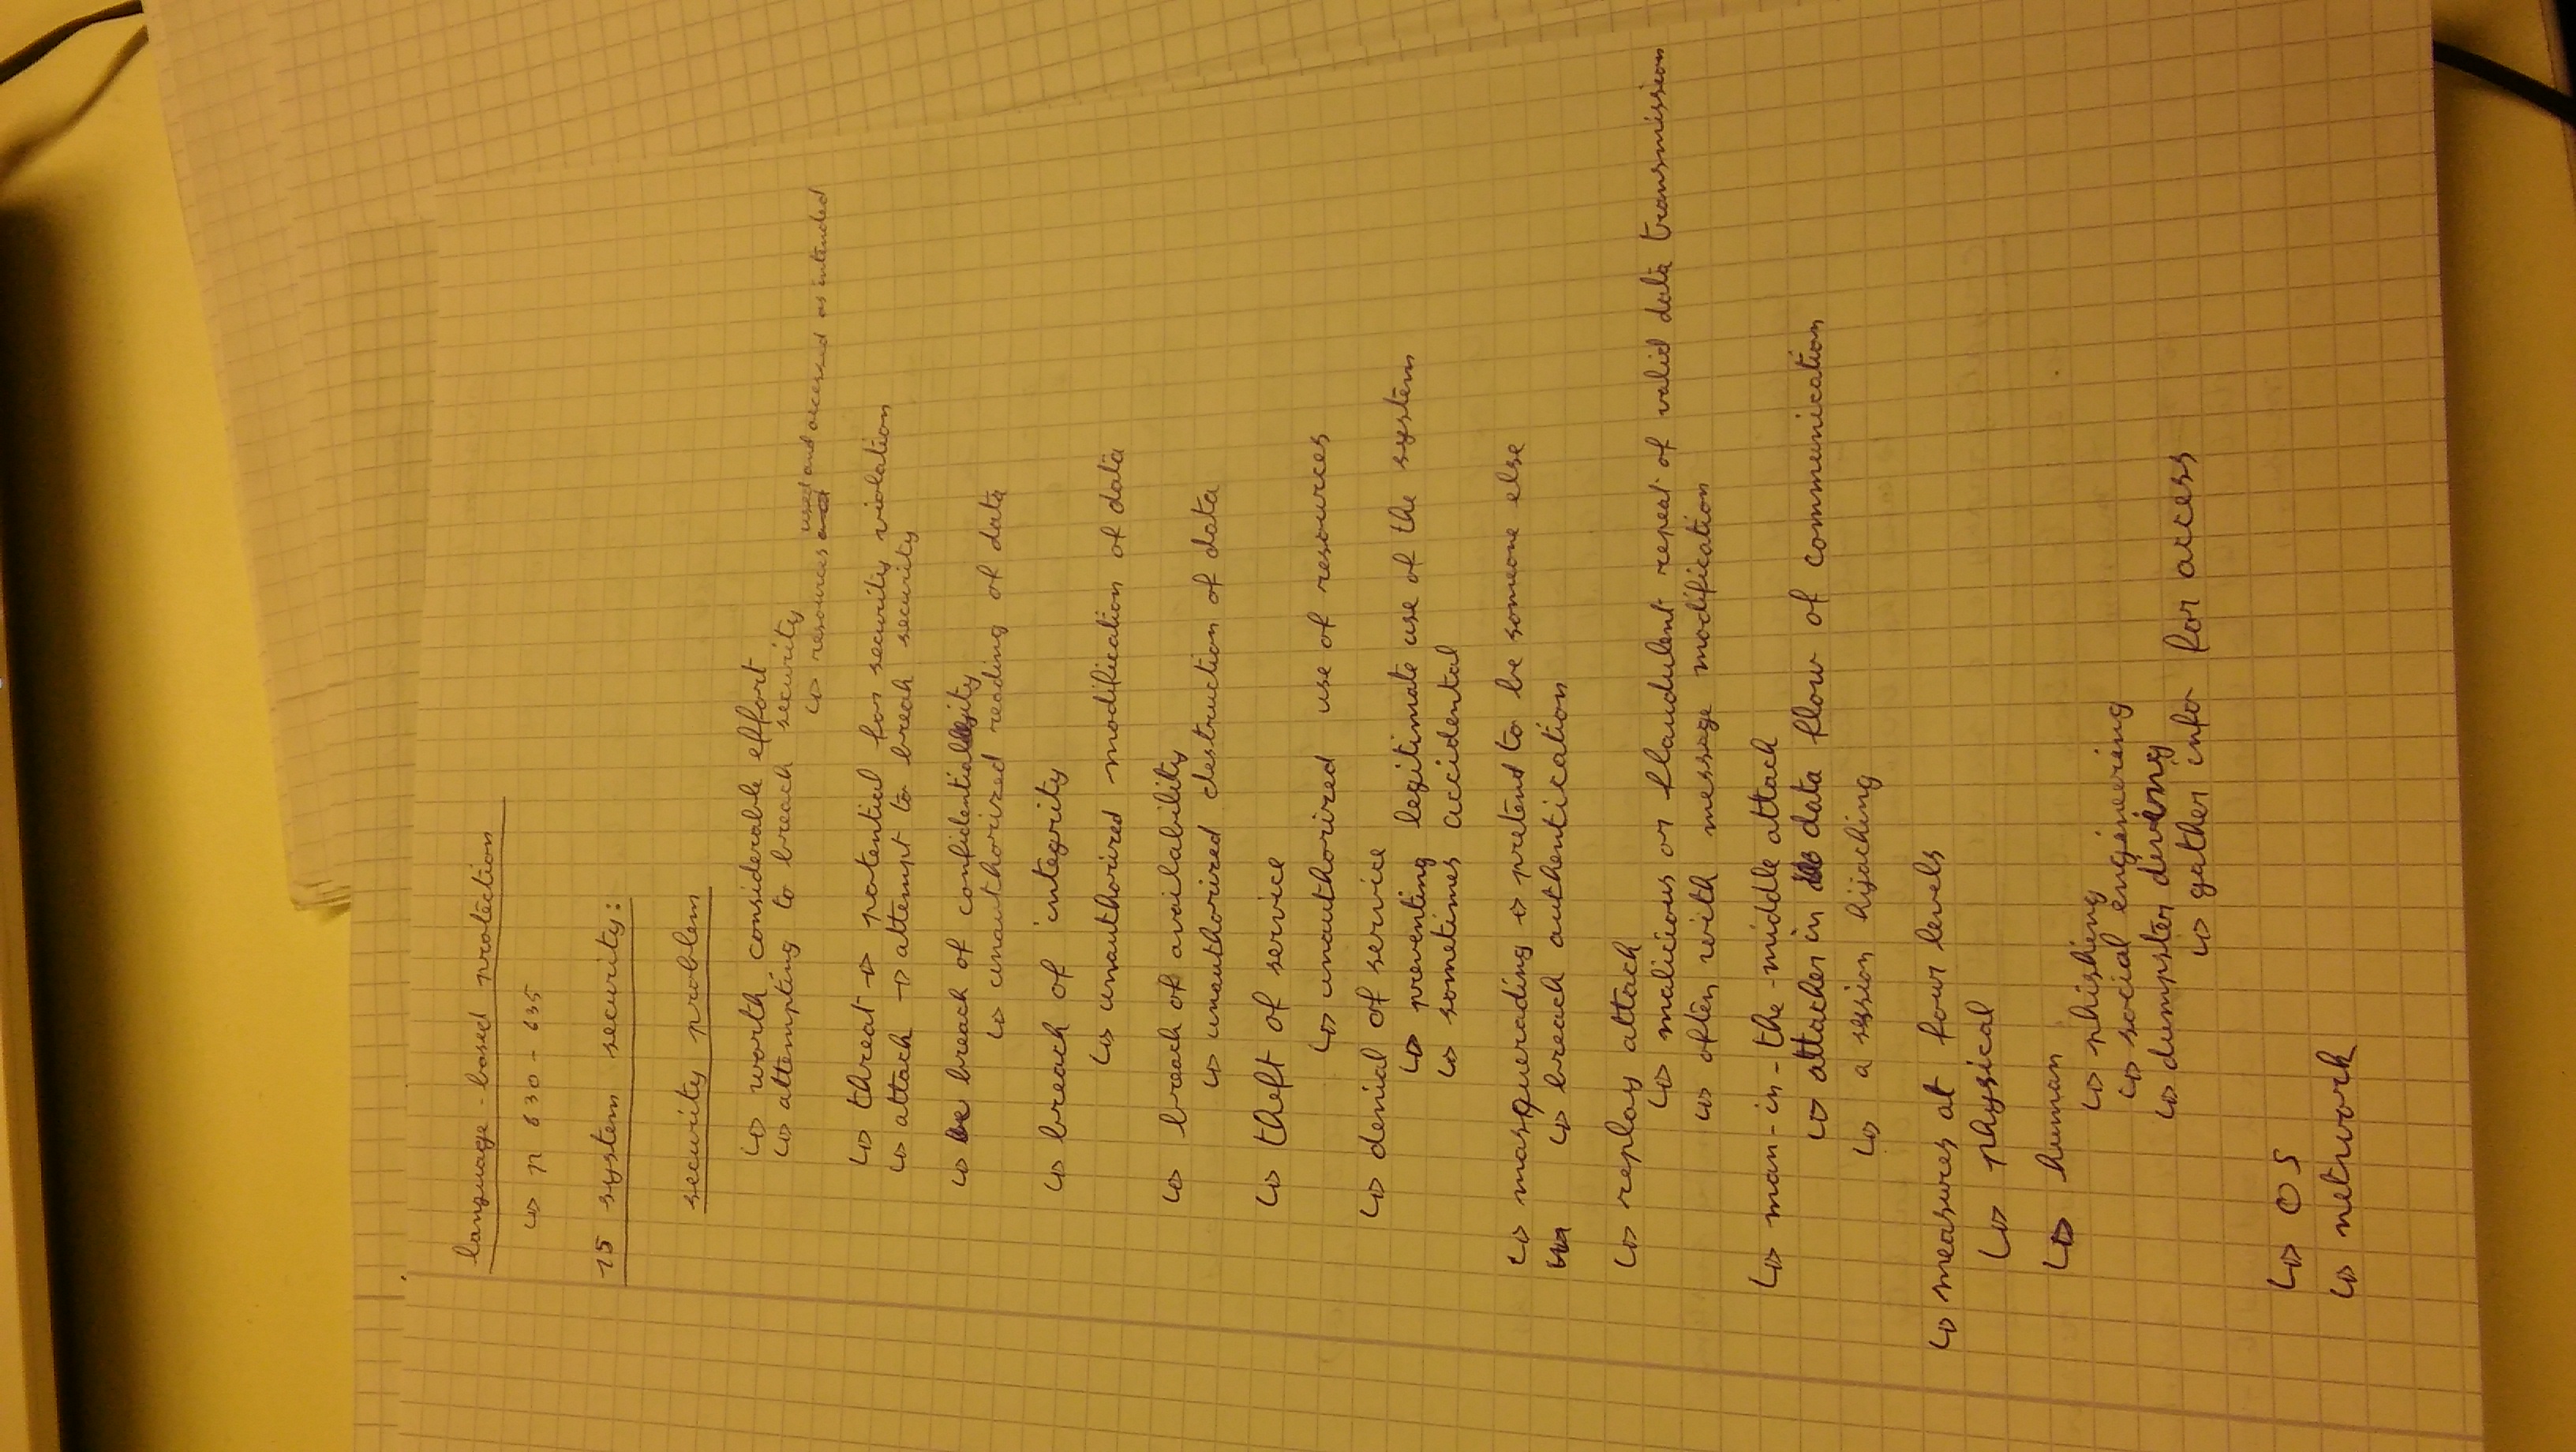 language-based protection
↳ p 630 - 635
15 system security:
security problem
↳ worth considerable effort
↳ attempting to breach security
↳ resources used and accessed as intended
↳ threat → potential for security violation
↳ attack → attempt to breah security
↳ breach of confidentiality
↳ unauthorized reading of data
↳ breach of integrity
↳ unauthorized modification of data
↳ breach of availability
↳ unauthorized destruction of data
↳ theft of service
↳ unauthorized use of resources
↳ denial of service
↳ preventing legitimate use of the system
↳ sometimes accidental
↳ masquerading → pretend to be someone else
↳ breach authentication
↳ replay attack
↳ malicious or flaudulent repeat of valid data transmission
↳ often with message modification
↳ man-in-the-middle attack
↳ attacker in data flow of communication
↳ a session hijacking
↳ measures at four levels
↳ physical
↳ human
↳ phishing
↳ social engineering
↳ dumpster diving
↳ gather info for access
↳ OS
↳ network